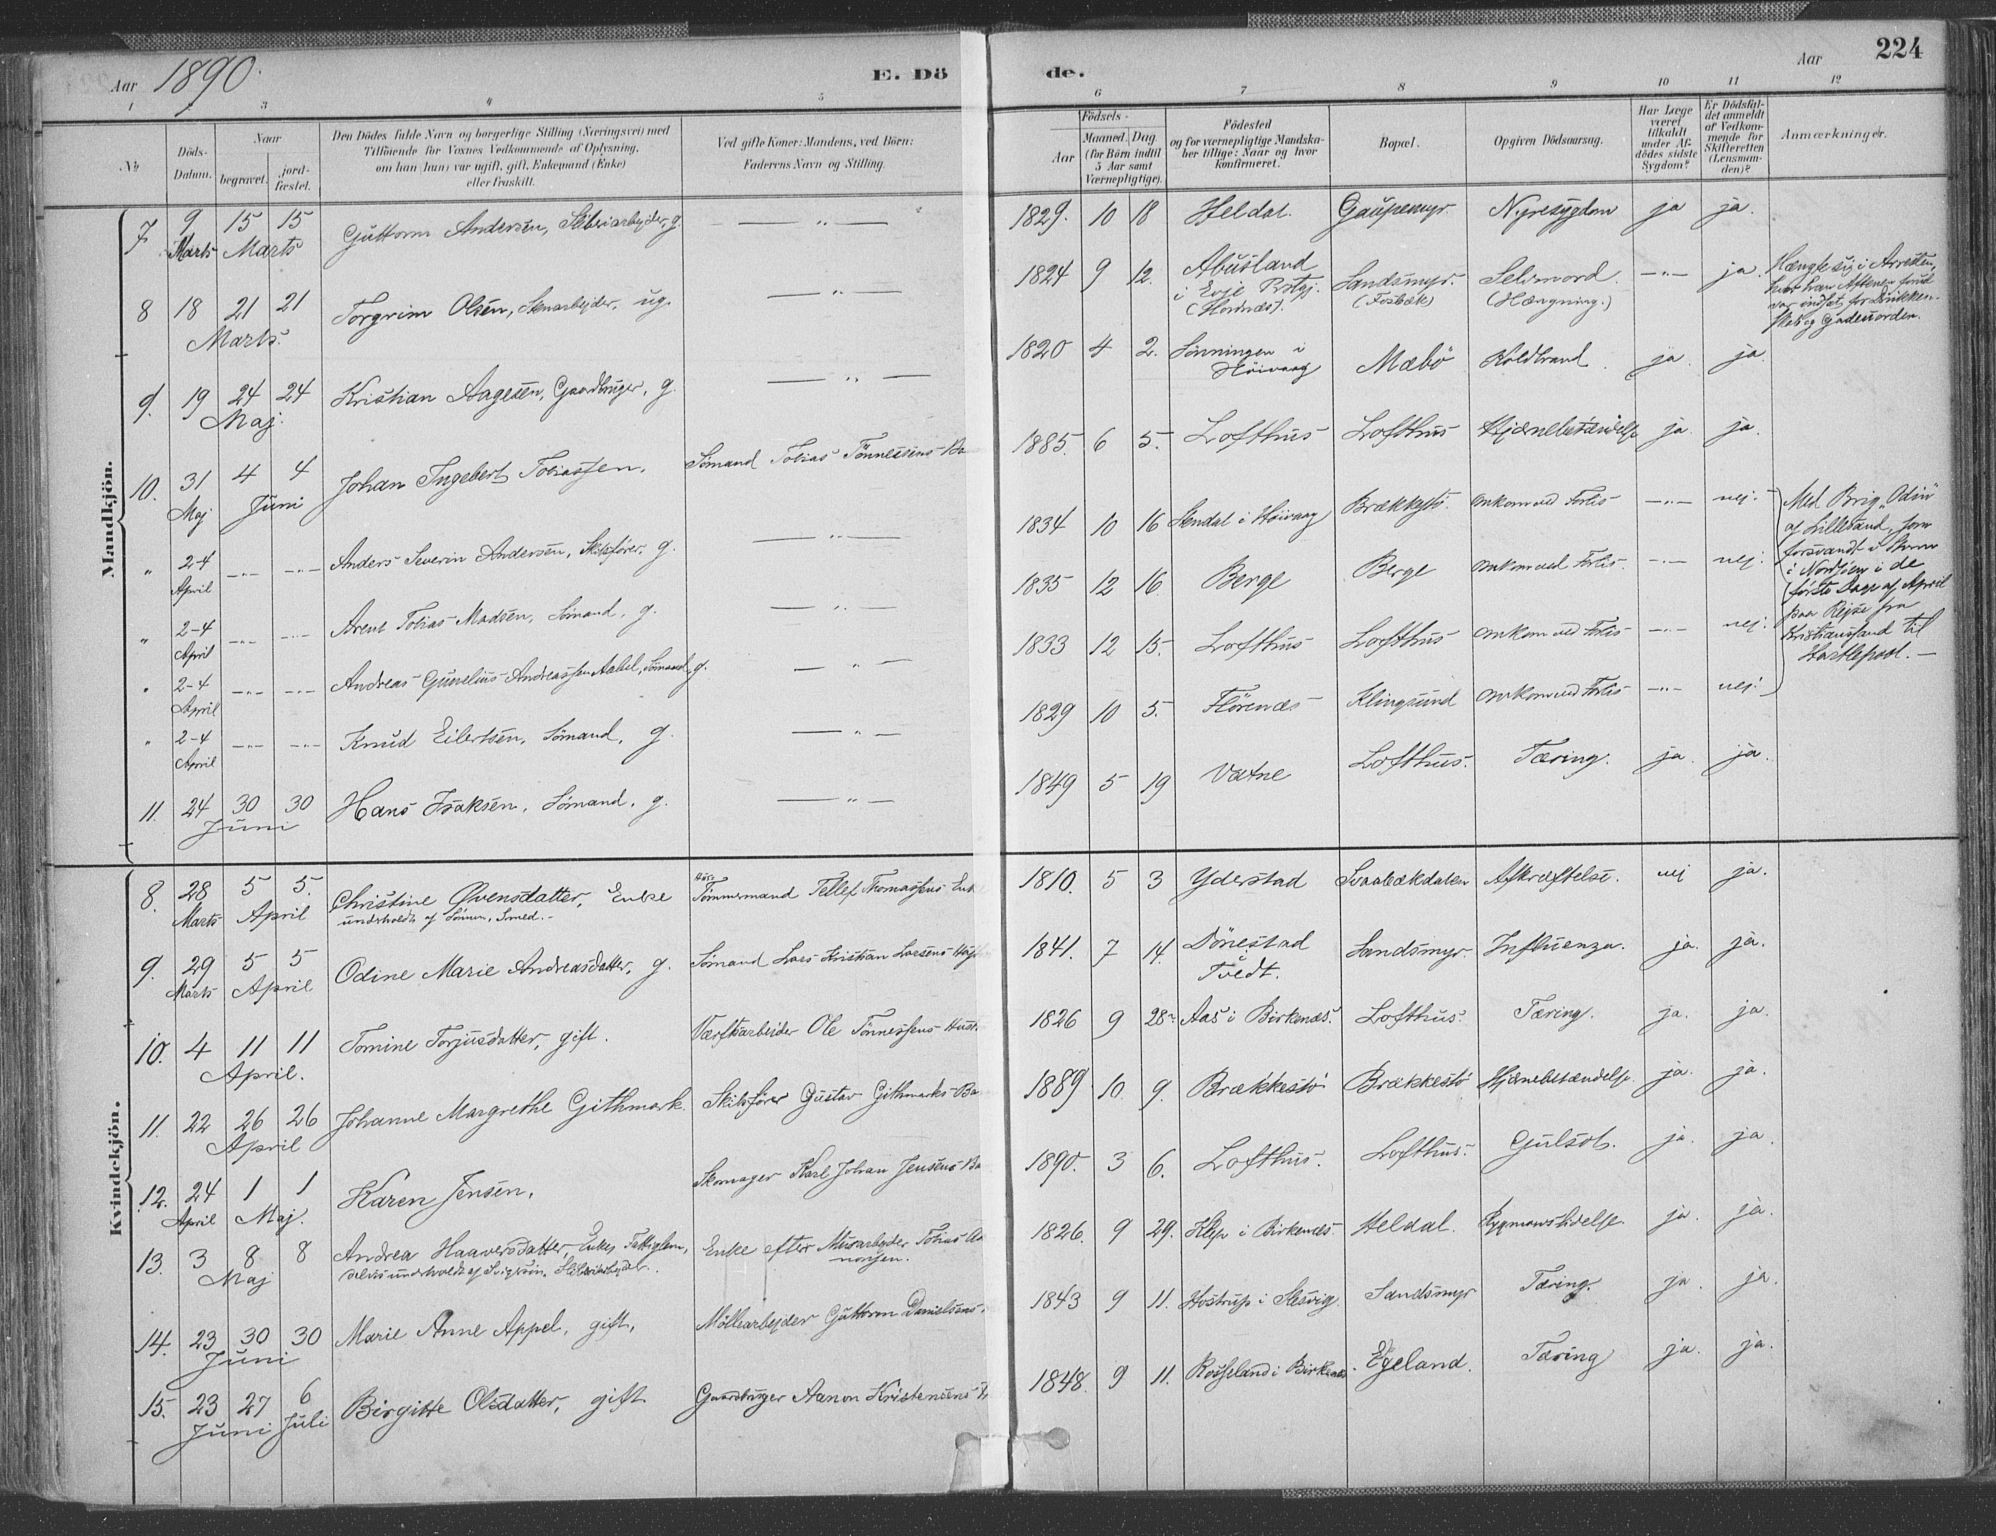 Aar 1890.
E. Dö
de.
Aar
224
1
3
4
5
6
7
8
9
10
11
12
No
Döds-Datum.
Naar
begravet.
jord-fæstet.
Den Dödes fulde Navn og borgerlige Stilling (Næringsvei) med
Tilföiende for Voxnes Vedkommende af Oplysning,
om han (hun) var ugift, gift, Enkemand (Enke)
eller fraskilt.
Ved gifte Koner: Mandens, ved Börn:
Faderens Navn og Stilling.
Födsels-
Aar
Maaned. Dag
(for Börn indtil
5 Aar samt
Værnepligtige).
Födested
og for værnepligtige Mandska-
ber tillige: Naar og hvor
konfirmeret.
Bopæl.
Opgiven Dödsaarsag.
Har Læge
været
tilkaldt
under Af-
dödes sidste
Sygdom?
Er Dödsfal-
det anmeldt
af Vedkom-
mende for
Skifteretten
(Lensman-
den)?
Anmærkninger.
Mandkjön.
7 9 Marts 15 15 Marts Guttorm Andersen, Skibsarbejder, g. — „ — 1829. 10 18 Heldal. Gaupemyr Nyresygdom ja ja.
8 18 21 21 Marts. Torgrim Olsen, Stenarbejder, ug. — „ — 1824 9 12. Abusland
i Evje Prstgj.
(Hornnes). Sandsmyr.
(Fosbæk) Selvmord.
(Hængning.) —„— ja. Hængte sig i Arresten,
hvor han Aftenen forud
var indsat for Drikken-
skab og Gadeuorden.
9. 19 24 24 Maj. Kristian Aagesen, Gaardbruger, g. — „ — 1820 4 2. Lönningen i
Höivaag Mæbö Koldbrand. ja. ja.
10. 31 Maj 4 4 Juni Johan Ingebert Tobiassen. Sömand Tobias Tönnessens 1885. 6 5. Lofthus Lofthus Hjernebetændelse ja. ja.
„ 2-4 April —„— —„— Anders Severin Andersen, Skibsförer, g. — „ — 1834 10 16 Stendal i Höivaag Brækkestö. Omkom ved Forlis —„— nej. Med Brig „Odin"
af Lillesand, som
forsvandt i Storm
i Nordsöen i de
förste Dage af April
paa Rejse fra
Kristianssand til
Hartlepool. —
„ 2-4 April —„— —„— Arent Tobias Madsen, Sömand, g. — „ — 1835 12 16. Berge Berge Omkom ved Forlis. —„— nej.
„ 2-4 April —„— —„— Andreas Gunelius Andreassen Aabel, Sömand, g. — „ — 1833 12 15. Lofthus Lofthus Omkom ved Forlis —„— nej.
„ 2-4 April —„— —„— Knud Eilertsen, Sömand, g. — „ — 1829 10 5. Flörenæs Klingsund Omkom ved Forlis —„— nej.
11. 24 30 30 Juni Hans Isaksen, Sömand, g. — „ — 1849 5 19 Vatne Lofthus. Tæring. ja. ja.
Kvindekjön.
8. 28 Marts 5 5. April Christine Ovensdatter, Enke
underholdt af Sönnen, Smed. - Tömmermand Tellef Thomassens Enke 1810. 5 3 Yderstad Svaabækdalen Afkræftelse. nej ja.
9. 29 Marts 5 5 April Odine Marie Andreasdatter, g. Sömand Lars Kristian Larsens 1841. 7 14. Dönestad
Tvedt. Sandsmyr. Influenza. ja. ja.
10. 4 11 11 April. Tomine Torjusdatter, gift. Værftarbejder Ole Tönnessens 1826 9 28. Aas i Birkenæs. Lofthus. Tæring. ja. ja.
11. 22 26 26 April Johanne Margrethe Githmark. Skibsförer Gustav Githmarks 1889. 10. 9. Brækkestö Brækkestö Hjernebetændelse. ja. ja.
12. 24 April 1 1 Maj. Karen Jensen, Skomager Karl Johan Jensens 1890. 3 6. Lofthus. Lofthus. Gulsot. ja. ja.
13. 3 8 8 Maj Andrea Haaversdatter, Enke, Fattiglem,
delvis underholdt af Svigersön, Skibsarbejder. Enke efter Murarbejder Tobias 1826. 9 29. Klep i Birkenæs. Heldal. Rygmarvslidelse. ja. ja.
14. 23 30 30 Juni Marie Anne Appel, gift, Möllearbejder Guttorm Danielsens 1843 9 11. Hostrup i Slesvig. Sandsmyr Tæring. ja. ja.
15. 23 27 Juni 6 Juli Birgitte Olsdatter, gift Gaardbruger Aanon Kristensens 1848. 9 11. Rosseland i Birkenæs. Egeland. Tæring ja. ja.